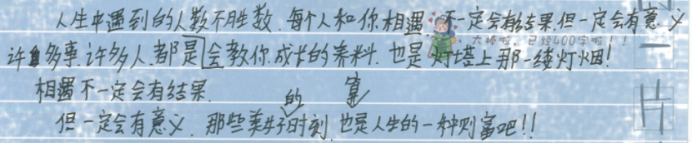 人生中遇到的人数不胜数,每个人和你相遇,不一定会有结果.但一定会有意义
大神啦,已经600字啦!!
许多事,许多人,都是会教你成长的养料.也是灯塔上那一缕灯烟!
相遇不一定会有结果.
但一定会有意义,那些美好的时刻,也是人生的一种财富吧!!